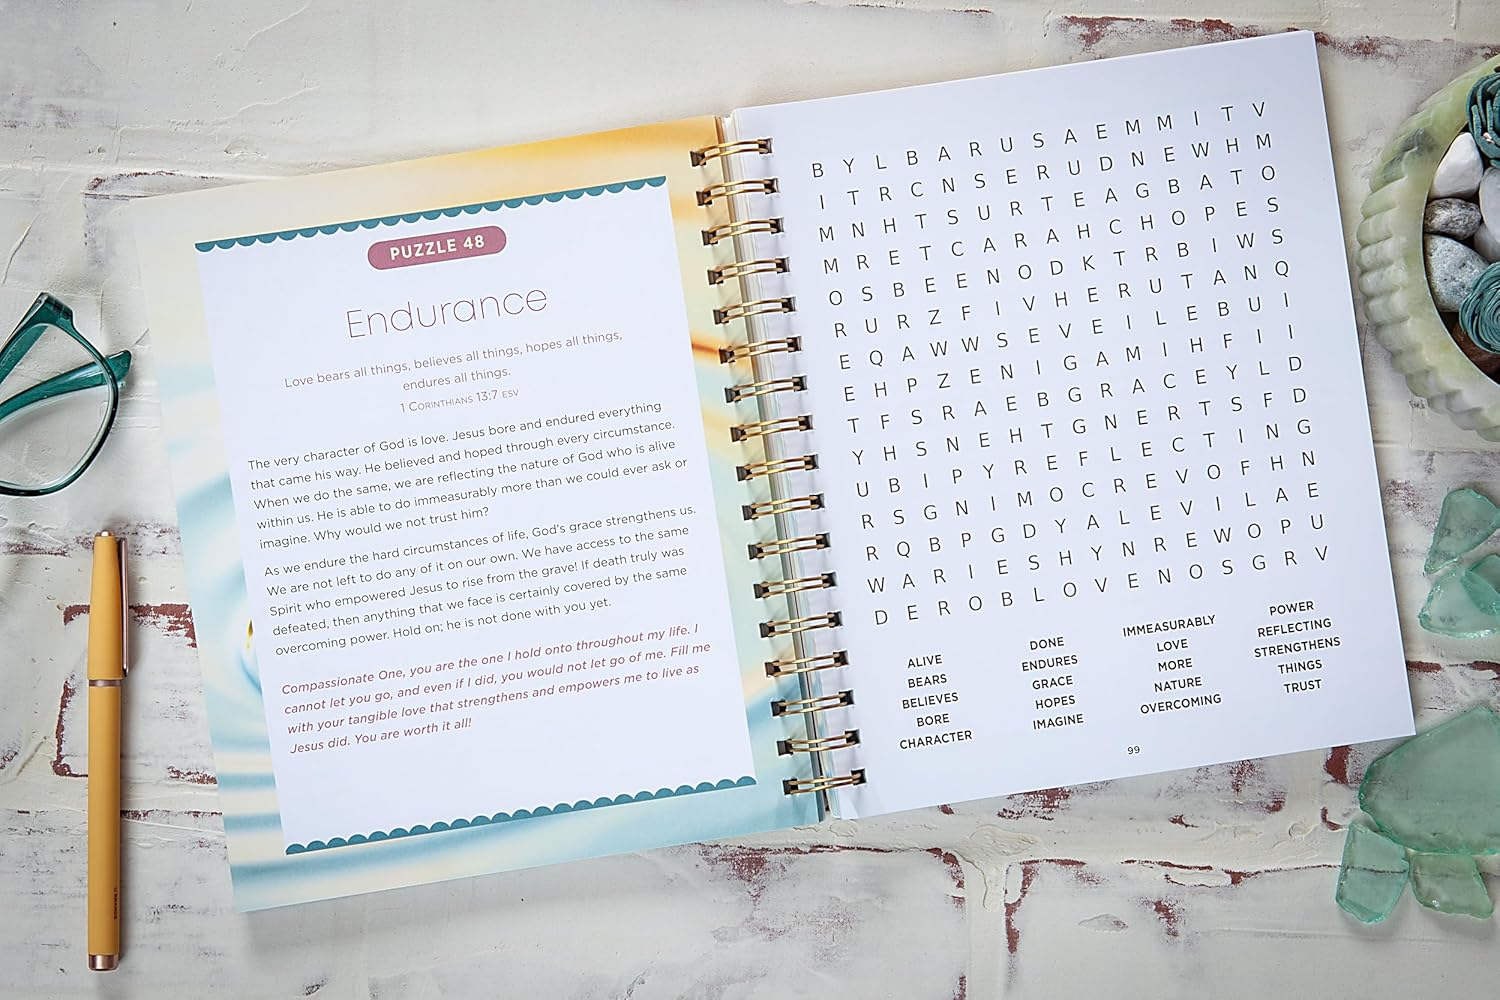 PUZZLE 48
Endurance
Love bears all things, believes all things, hopes all things,
endures all things.
1 Corinthians 13:7 esv
The very character of God is love. Jesus bore and endured everything
that came his way. He believed and hoped through every circumstance.
When we do the same, we are reflecting the nature of God who is alive
within us. He is able to do immeasurably more than we could ever ask or
imagine. Why would we not trust him?
As we endure the hard circumstances of life, God's grace strengthens us.
We are not left to do any of it on our own. We have access to the same
Spirit who empowered Jesus to rise from the grave! If death truly was
defeated, then anything that we face is certainly covered by the same
overcoming power. Hold on; he is not done with you yet.
Compassionate One, you are the one I hold onto throughout my life. I
cannot let you go, and even if I did, you would not let go of me. Fill me
with your tangible love that strengthens and empowers me to live as
Jesus did. You are worth it all!
B Y L B A R U S A E M M I T V
I T R C N S E R U D N E W H M
M N H T S U R T E A G B A T O
M R E T C A R A H C H O P E S
O S B E E N O D K T R B I W S
R U R Z F I V H E R U T A N Q
E Q A W W S E V E I L E B U I
E H P Z E N I G A M I H F I I
T F S R A E B G R A C E Y L D
Y H S N E H T G N E R T S F D
U B I P Y R E F L E C T I N G
R S G N I M O C R E V O F H N
R Q B P G D Y A L E V I L A E
W A R I E S H Y N R E W O P U
D E R O B L O V E N O S G R V
ALIVE
BEARS
BELIEVES
BORE
CHARACTER
DONE
ENDURES
GRACE
HOPES
IMAGINE
IMMEASURABLY
LOVE
MORE
NATURE
OVERCOMING
POWER
REFLECTING
STRENGTHENS
THINGS
TRUST
99